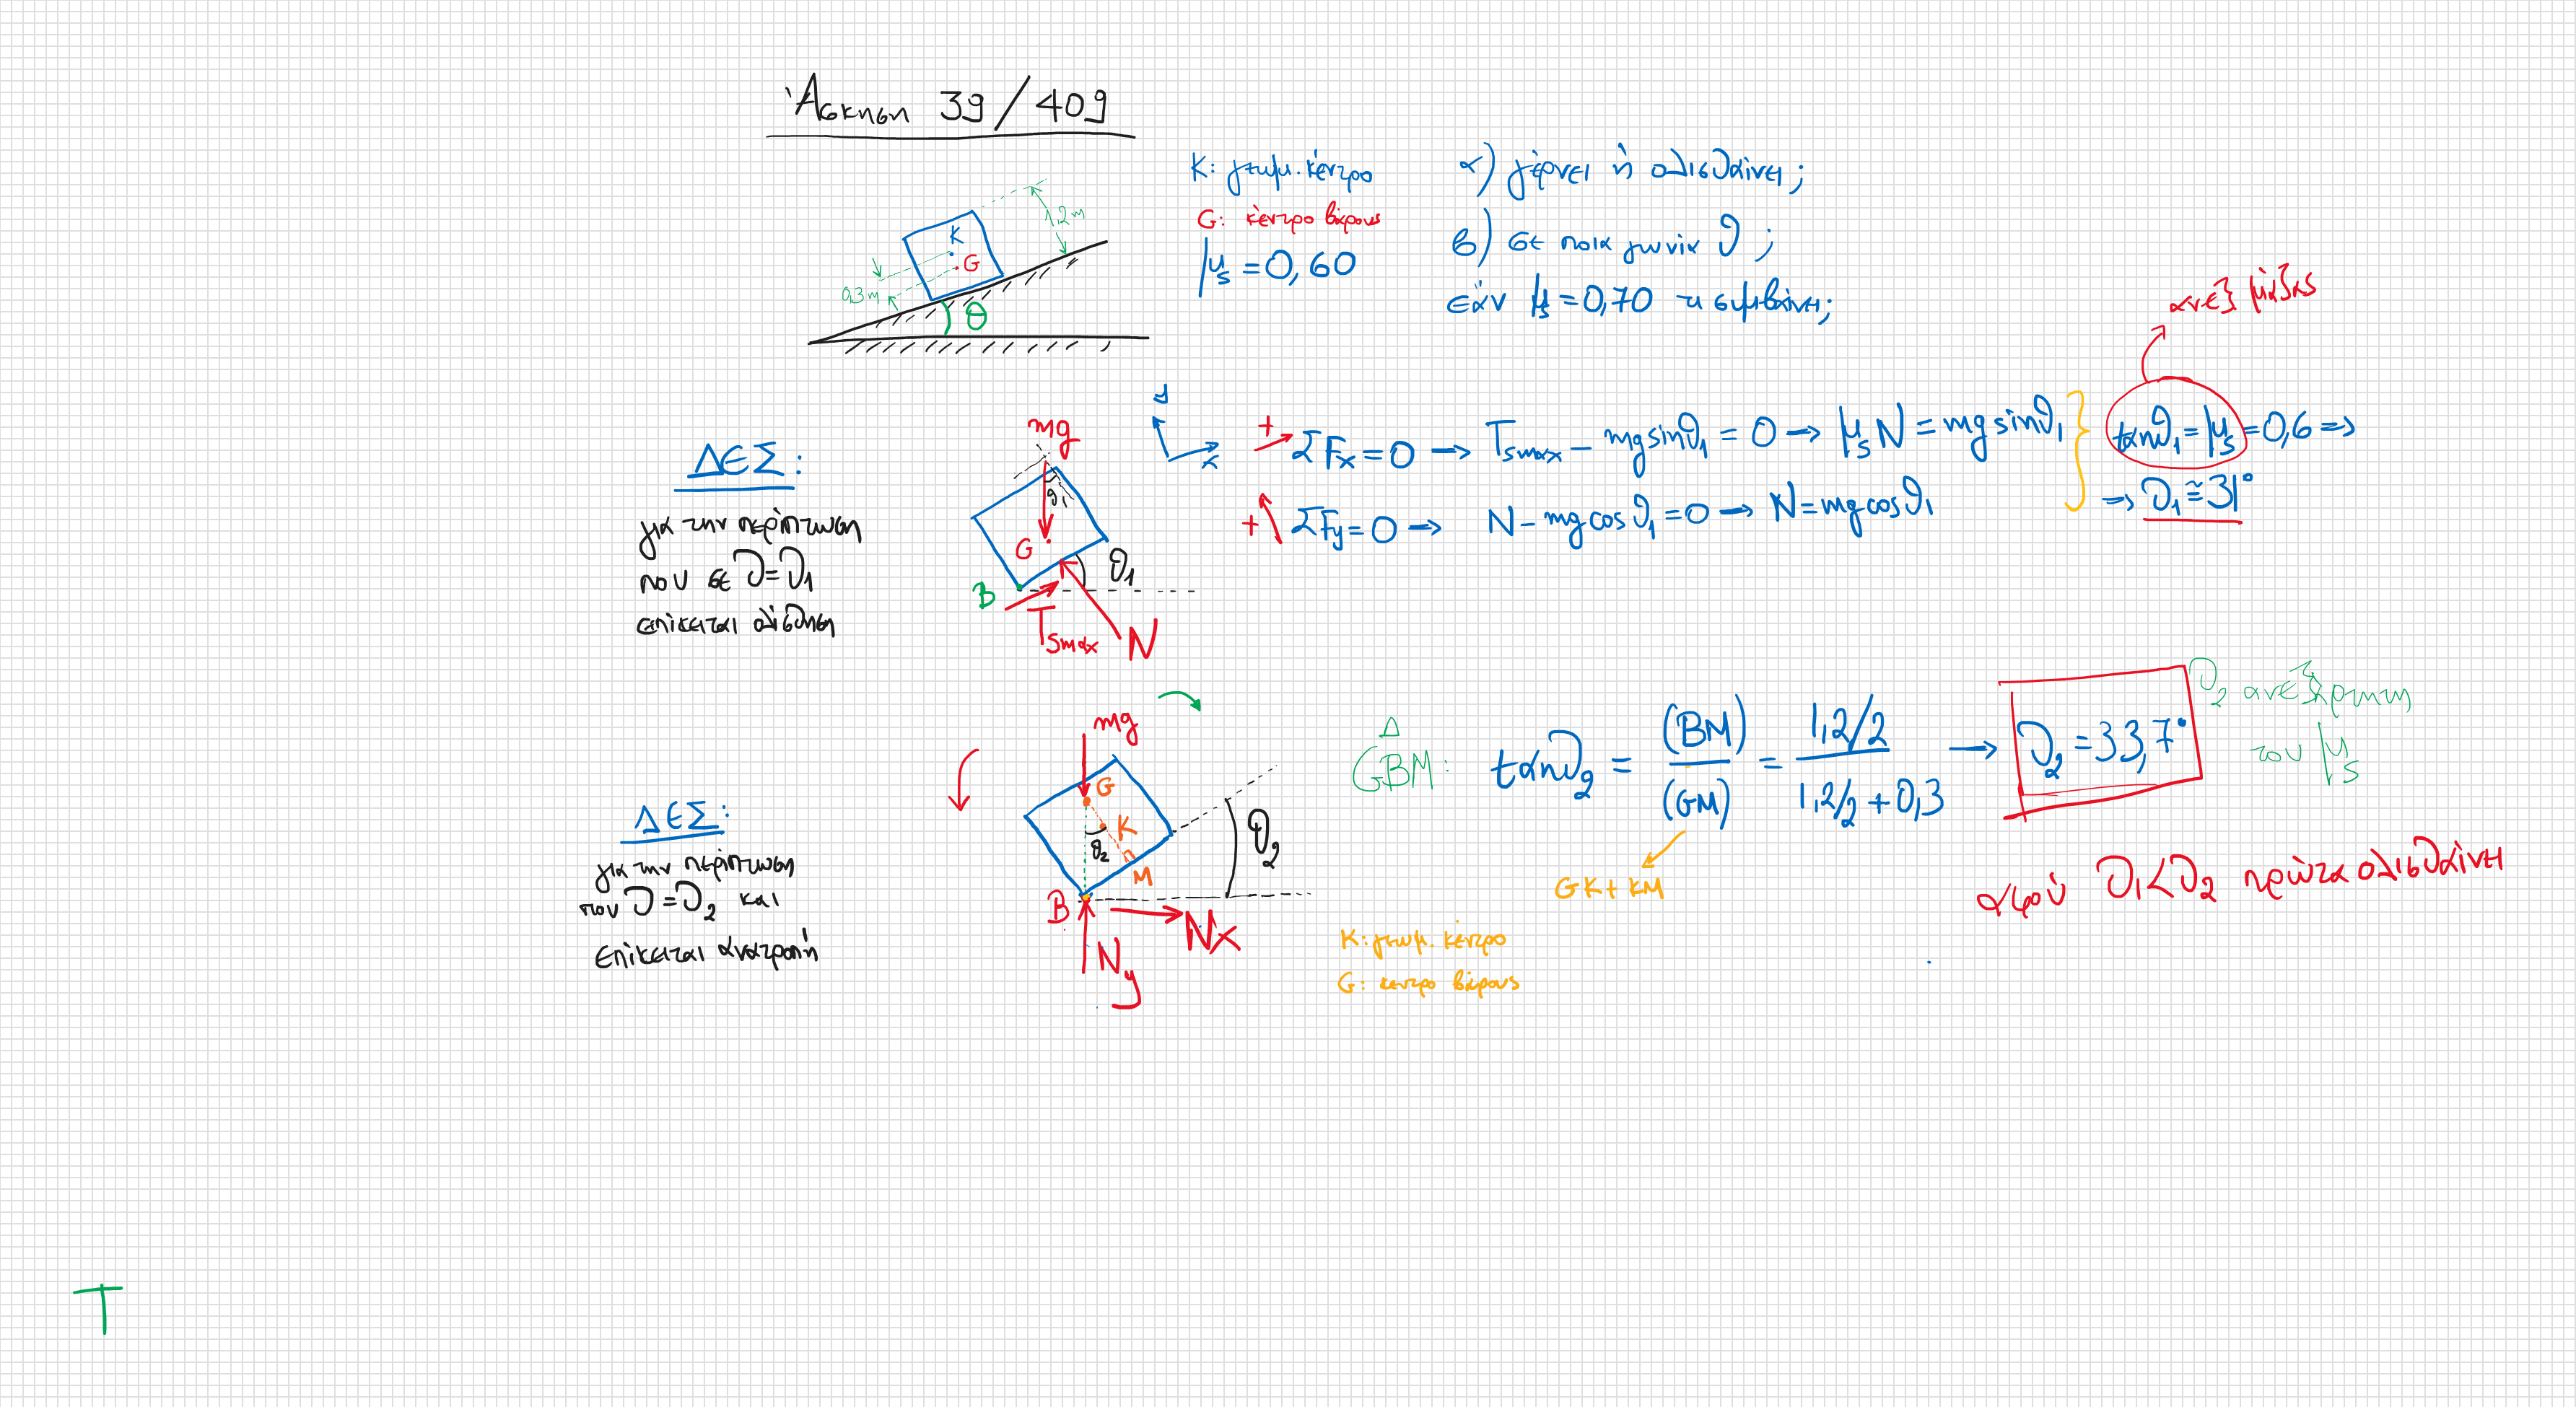 Άσκηση 39/409
K: γεωμ. κέντρο
G: κέντρο βάρους
μs = 0,60
α) γέρνει ή ολισθαίνει;
β) σε ποια γωνία θ;
εάν μs = 0,70 τι συμβαίνει;
1,2 m
K
G
0,3 m
θ
ανεξ μάζας
ΔΕΣ:
για την περίπτωση
που σε θ=θ1
επίκειται ολίσθηση
mg
θ1
G
B
Tsmax
N
θ1
y
x
+ ΣFx = 0 → Tsmax − mg sinθ1 = 0 → μs N = mg sinθ1
+ ΣFy = 0 → N − mg cosθ1 = 0 → N = mg cosθ1
tanθ1 = μs = 0,6 ⇒
⇒ θ1 ≅ 31°
ΔΕΣ:
για την περίπτωση
που θ = θ2 και
επίκειται ανατροπή
mg
G
K
θ2
M
B
Nx
Ny
θ2
GBM: tanθ2 = (BM)/(GM) = 1,2/2 / 1,2/2 + 0,3 → θ2 = 33,7°
GK + KM
θ2 ανεξάρτητη
του μs
αφού θ1 < θ2 πρώτα ολισθαίνει
K: γεωμ. κέντρο
G: κεντρο βάρους
T